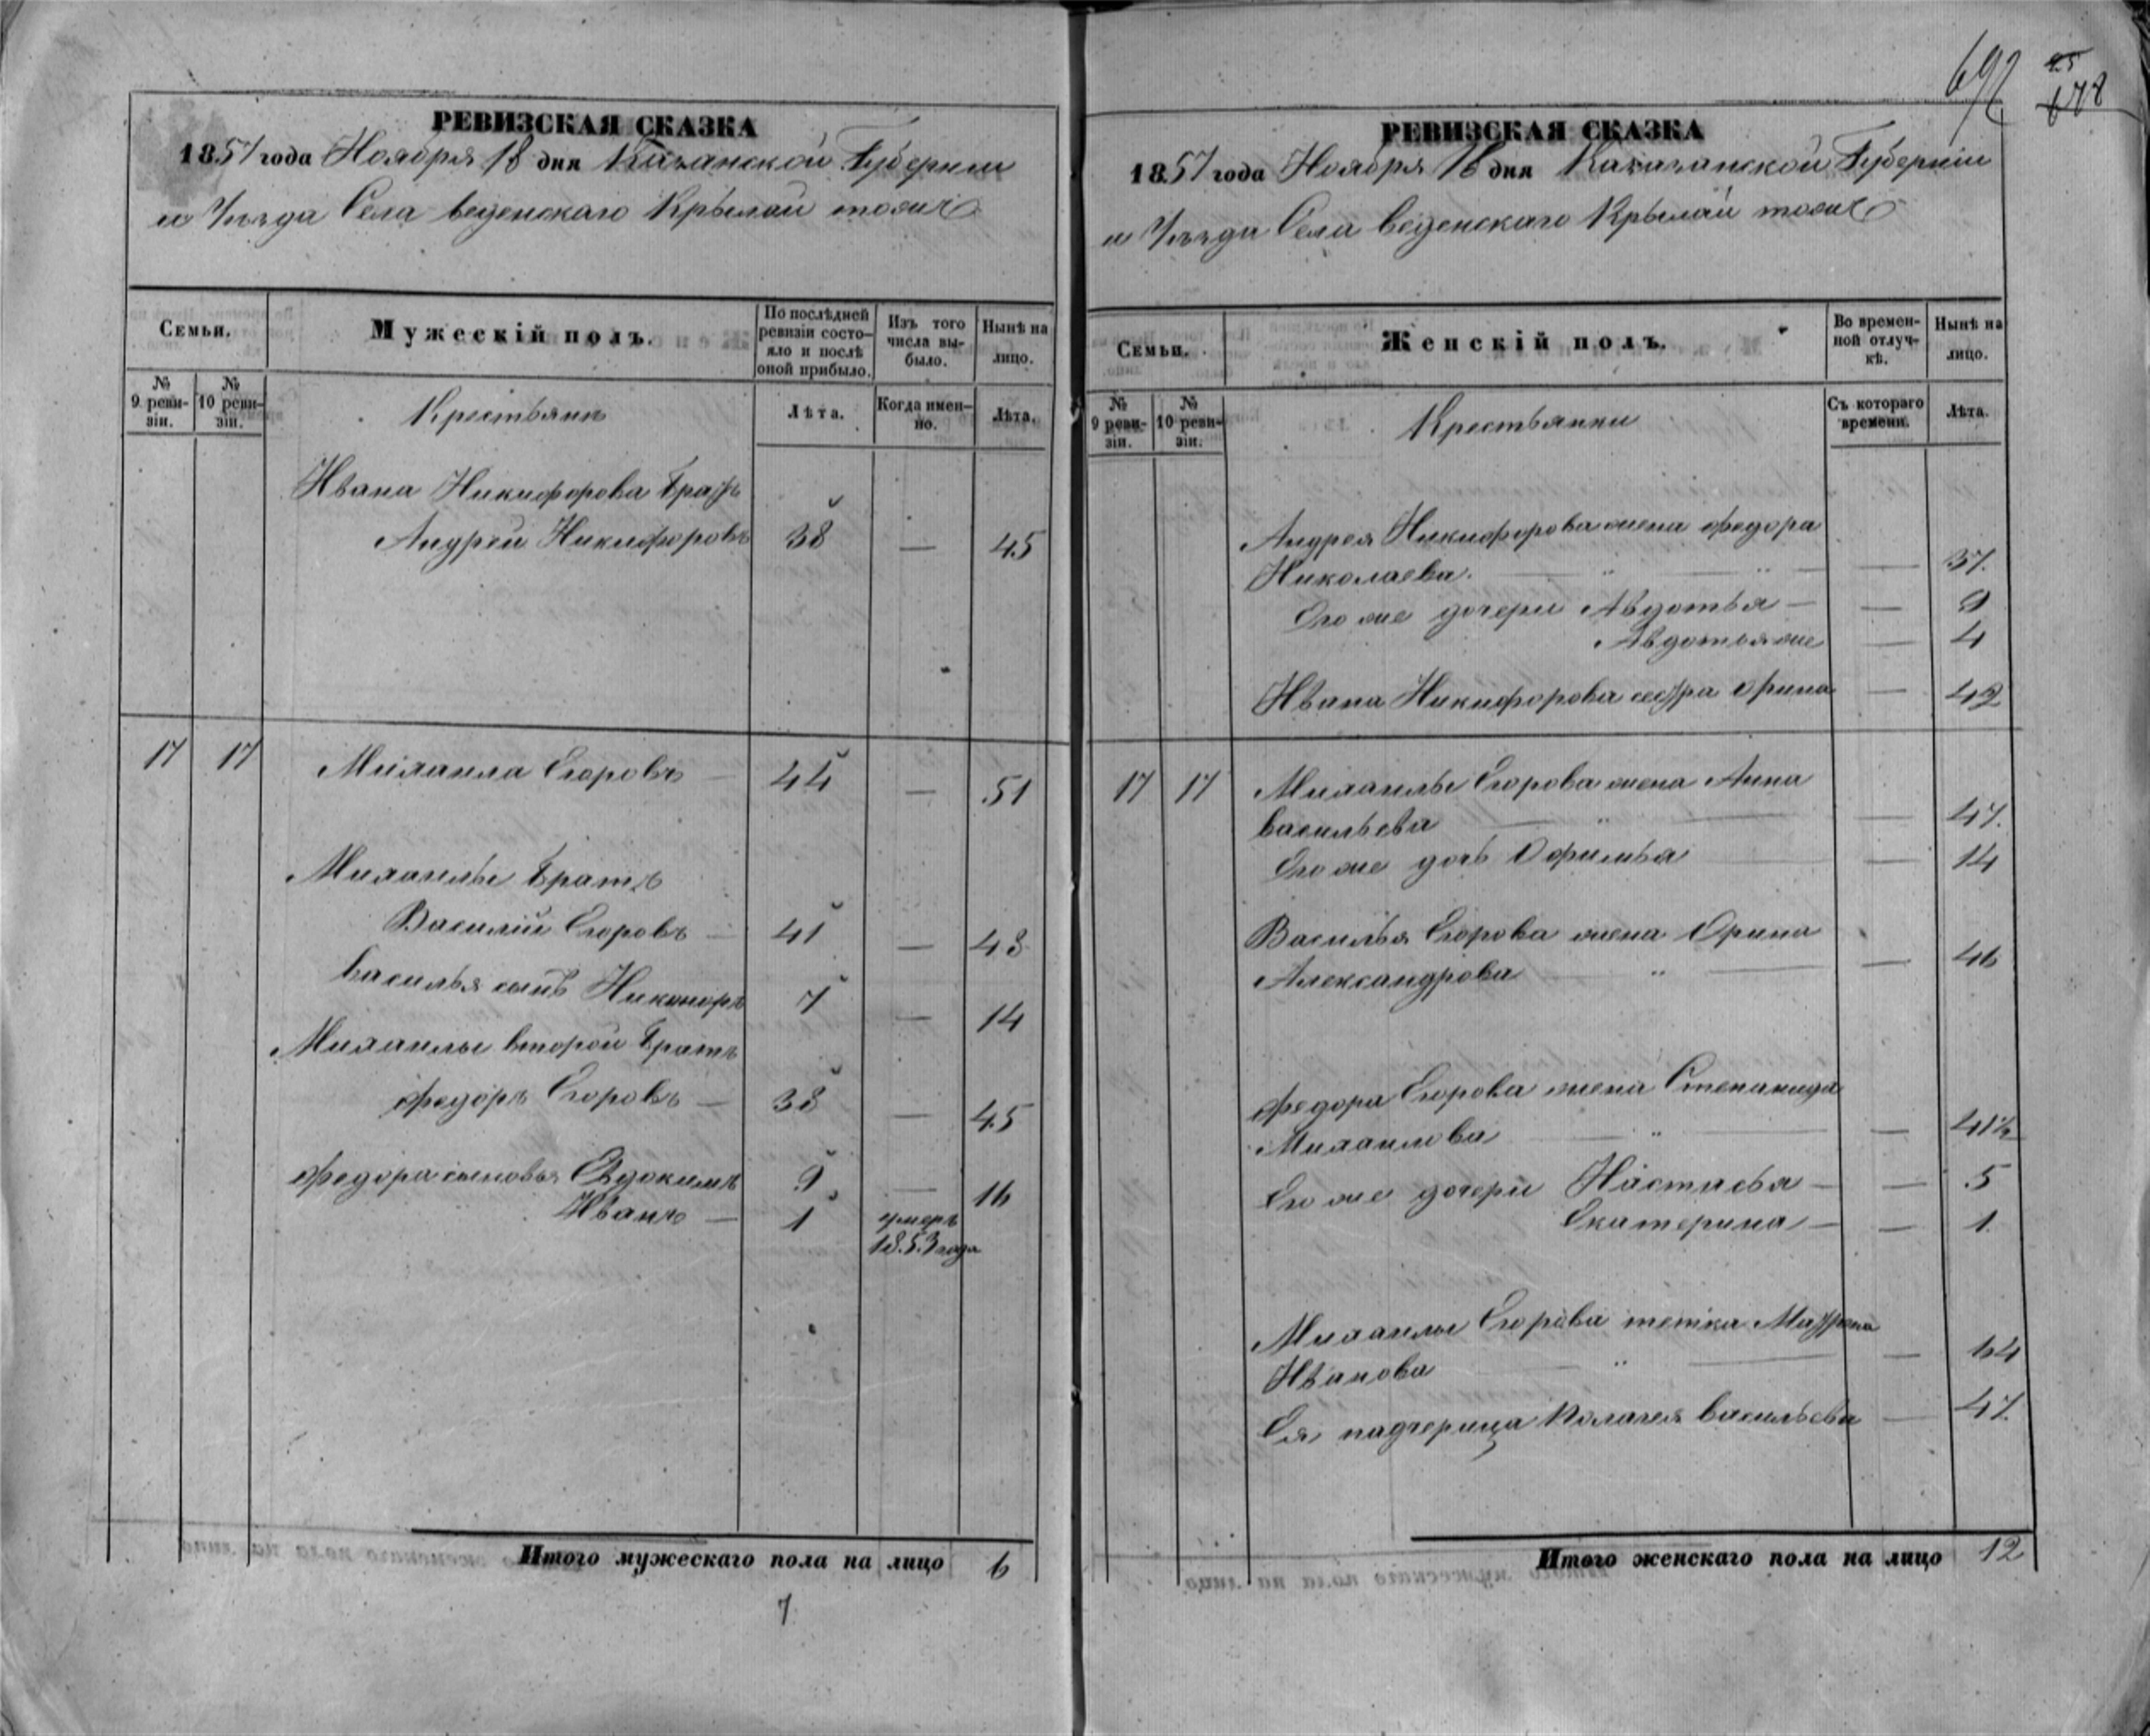 РЕВИЗСКАЯ СКАЗКА
1857 года Ноября 18 дня Казанской Губернии
и Уѣзда Села Веденскаго Крылай тожъ
Семьи.
Мужескій полъ.
По послѣдней ревизіи состояло и послѣ оной прибыло.
Изъ того числа выбыло.
Нынѣ на лицо.
№ 9 ревизіи.
№ 10 ревизіи.
Крестьянъ
Лѣта.
Когда именно.
Лѣта.
Ивана Никифорова братъ
Андрей Никифоровъ 38 — 45
17 17 Михаила Егоровъ — 44 — 51
Михаилы братъ
Василій Егоровъ — 41 — 48
Василья сынъ Никаноръ 7 — 14
Михаилы второй братъ
Федоръ Егоровъ — 38 — 45
Федора сыновья Евдокимъ 9 — 16
Иванъ — 1 умеръ
1853 года
Итого мужескаго пола на лицо 6
7
692
25
678
РЕВИЗСКАЯ СКАЗКА
1857 года Ноября 18 дня Казазанской Губерніи
и Уѣзда Села Веденскаго Крылай тожъ
Семьи.
Женскій полъ.
Во временной отлучкѣ.
Нынѣ на лицо.
№ 9 ревизіи.
№ 10 ревизіи.
Крестьянки
Съ котораго времени.
Лѣта.
Андрея Никифорова жена Федора
Николаева. — " — " — — 37.
Его же дочери Авдотья — — 9
Авдотья же — 4
Ивана Никифорова сестра Орина — 42
17 17 Михаилы Егорова жена Анна
Васильева — " — — 47.
Его же дочь Офимья — 14
Василья Егорова жена Орина
Александрова — " — — 46
Федора Егорова жена Степанида
Михаилова — " — — 41½
Его же дочери Настасья — — 5
Екатерина — — 1.
Михаилы Егорова тетка Матрена
Иванова — " — — 64
Ея падчерица Палагея Васильева — 47.
Итого женскаго пола на лицо 12